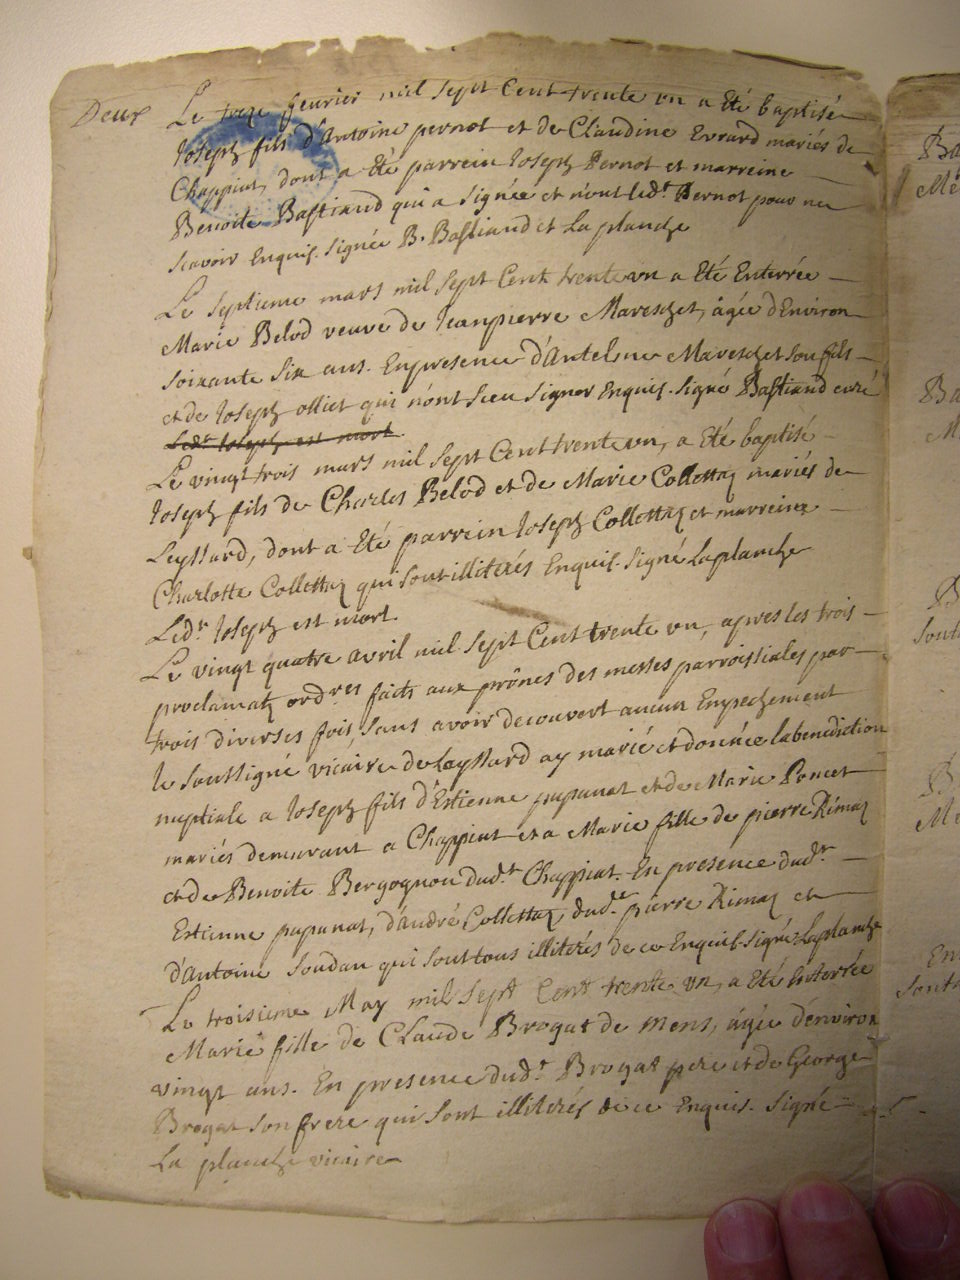 Deux
Le treze fevrier mil sept Cent trente un a Eté baptisé
Joseph fils d'Antoine pernot et de Claudine Evrard mariés de
Chappiat, dont a Eté parrein Joseph Pernot et marreine
Benoite Bastiand qui a signée et n'ont led.t Pernot pour ne
scavoir Enquis. signée B. Bastiand et La planche
Le septieme mars mil sept Cent trente un a Eté Enterrée
Marie Belod veuve de Jeanpierre Mareschet, agée d'Environ
soixante six ans. En presence d'Antelme Mareschet son fils
et de Joseph olliet qui n'ont sceu signer Enquis. signé Bastiand curé
Led.t Joseph est mort.
Le vingt trois mars mil sept Cent trente un, a Eté baptisé
Joseph fils de Charles Belod et de Marie Collettaz mariés de
Leyssard, dont a Eté parrein Joseph Collettaz et marreine
Charlotte Collettaz qui sont illiterés Enquis. signé Laplanche
Led.t Joseph est mort.
Le vingt quatre avril mil sept Cent trente un, apres les trois
proclamat ord.res faits aux prônes des messes parroissiales par
trois diverses fois, sans avoir decouvert aucun Empechement
le soussigné vicaire de Leyssard ay marié et donnée la benediction
nuptiale a Joseph fils d'Estienne pupunat et de Marie Poncet
mariés demeurant a Chappiat et a Marie fille de pierre Rimaz
et de Benoite Bergognon dud.t Chappiat. En presence dud.t
Estienne pupunat, d'andré Collettaz, dud.t pierre Rimaz et
d'Antoine Soudan qui sont tous illiterés de ce Enquis. signé Laplanche
Le troisieme May mil sept Cent trente un, a Eté Enterrée
Marie fille de Claude Brogat de Mens, agée d'environ
vingt ans. En presence dud.t Brogat pere et de George
Brogat son frere qui sont illiterés de ce Enquis. signé
La planche vicaire